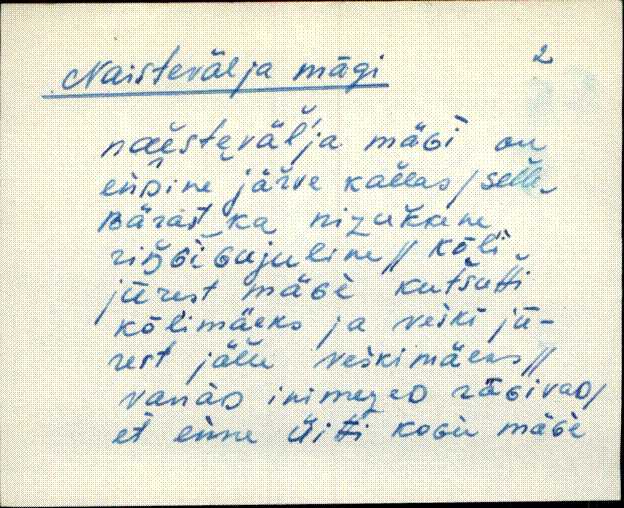 Naistevälja mägi
2
naĕstevälja mäGi on
enDine järve kallas / selle
Bärast ka nizukkene
ringiGujuline // kõli
jūrest mäGe kutsutti
kõlimäeks ja veski jū-
rest jälle veskimäeks //
vanaD inimezeD rāGivaD /
et enne üitti koGu mäGe